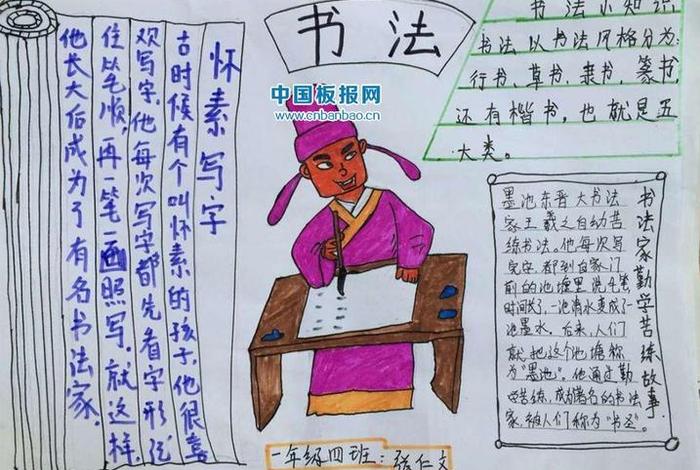 书法
中国板报网
www.cnbanbao.cn
怀素写字
古时候有个叫怀素的孩子,他很喜
欢写字,他每次写字都先看字形,记
住笔顺,再一笔一画照写,就这样
他长大后成为了有名书法家.
书法小知识
书法以书法风格分为:
行书、草书、隶书、篆书,
还有楷书。也就是五
大类。
书法家勤学苦练故事
墨池东晋大书法
家王羲之自幼苦
练书法。他每次写
完字,都到自家门
前的池塘里洗毛笔,
时间长了,一池清水变成了一
池墨水。后来,人们
就把这个池塘称
为"墨池"。他通过勤
学苦练,成为著名的书法
家,被人们称为"书圣"。
一年级四班:张仁文